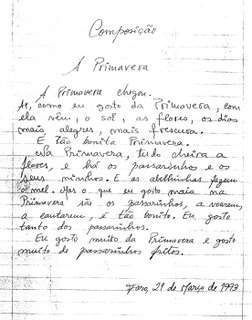 Composição
A Primavera
A Primavera chegou.
Ai, como eu gosto da Primavera, com
ela vêm, o sol, as flores, os dias
mais, alegres, mais frescura.
E tão bonita Primavera.
Na Primavera, tudo cheira a
flores, e há os passarinhos e os
seus ninhos. E as abelhinhas fazem
o mel. Mas o que eu gosto mais na
Primavera são os passarinhos, a voarem,
a cantarem, é tão bonito. Eu gosto
tanto dos passarinhos.
Eu gosto muito da Primavera e gosto
muito de passarinhos fritos.
Faro, 21 de Março de 1993